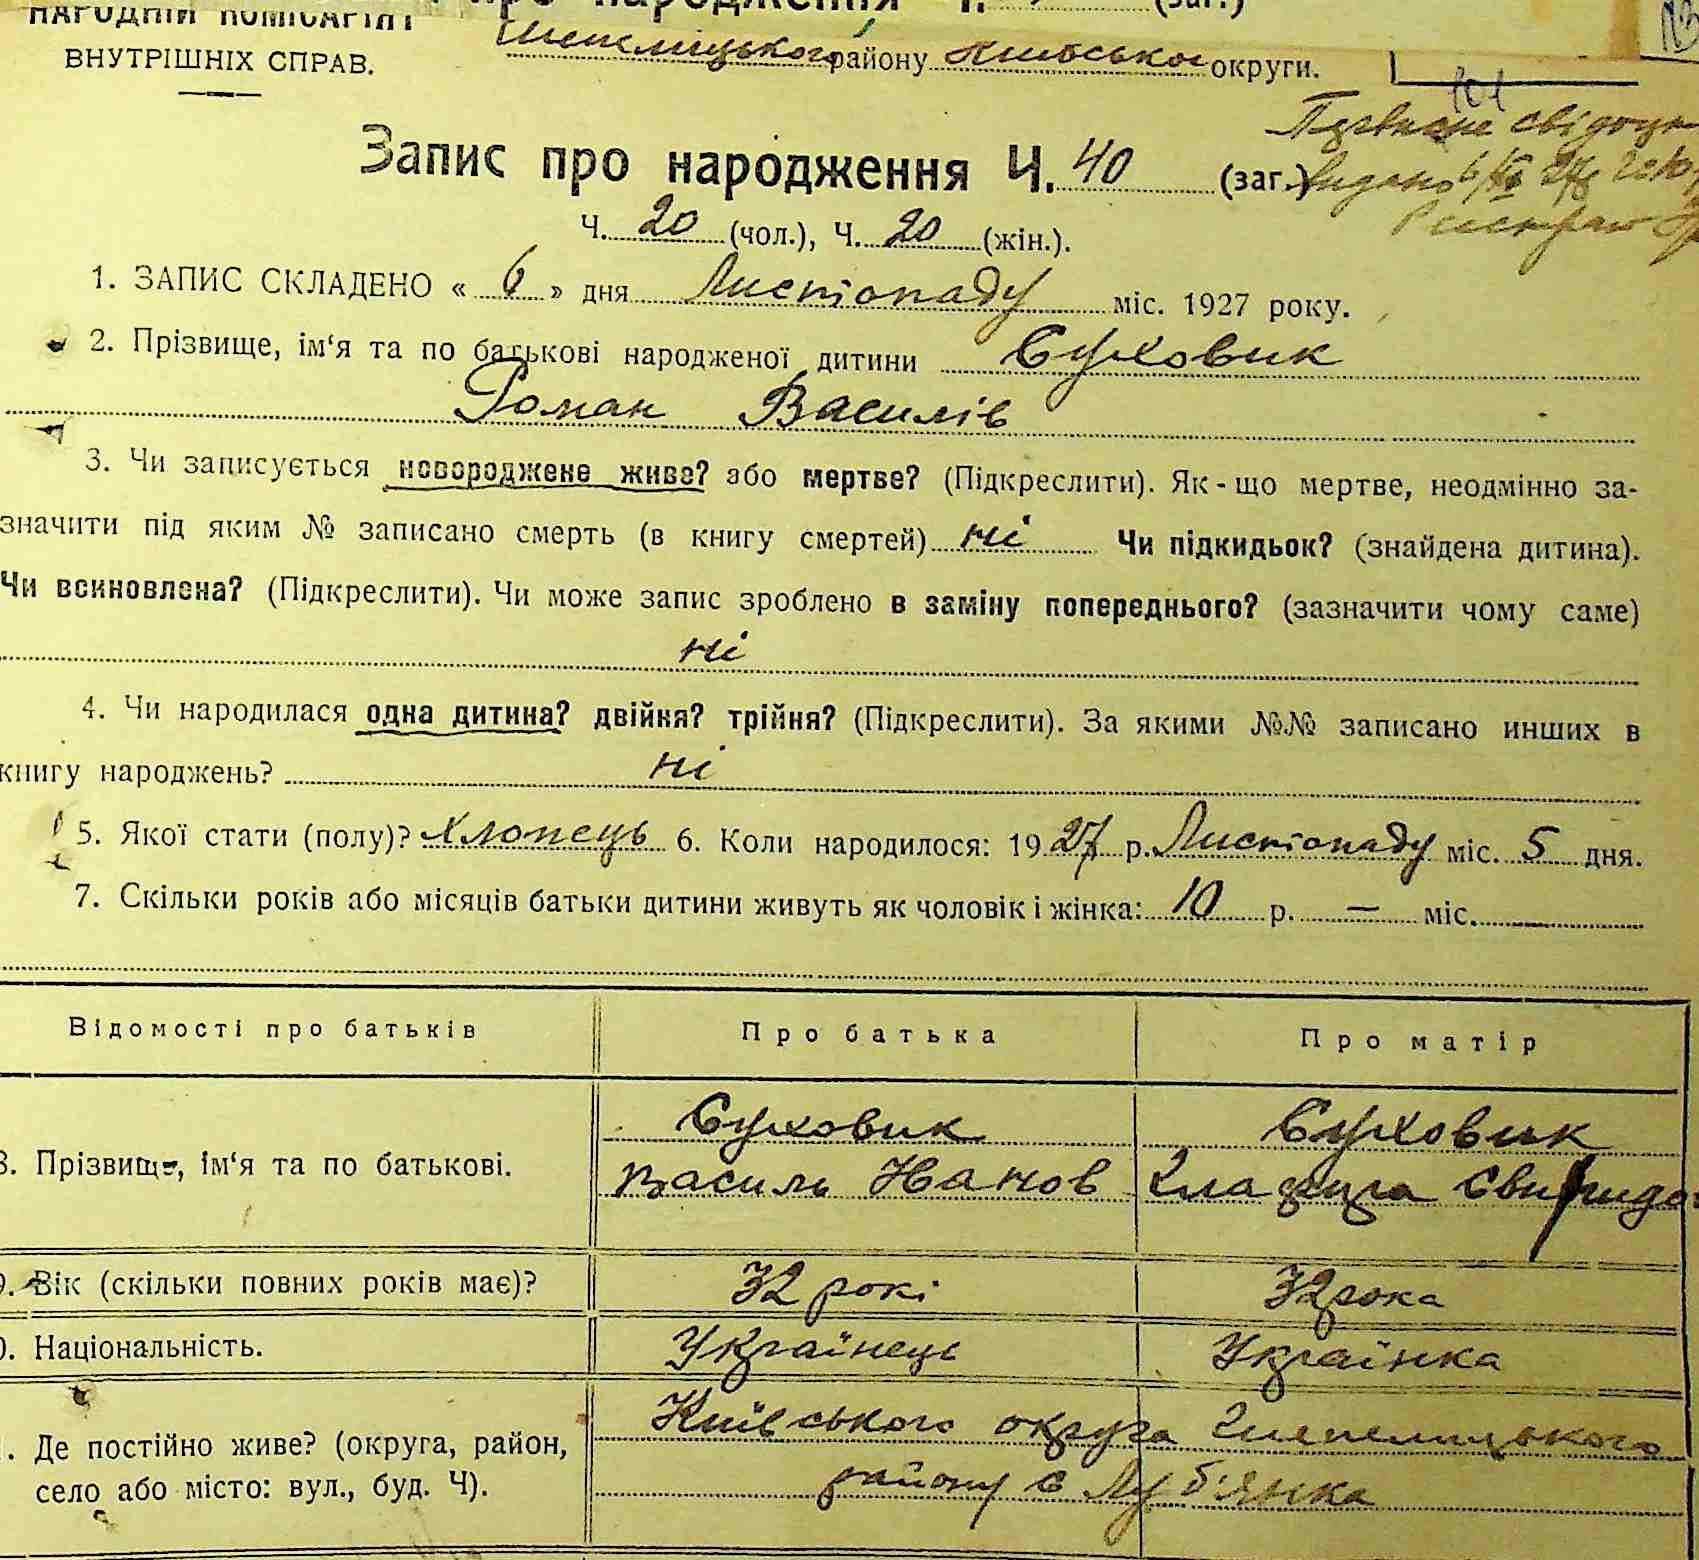 про народження Ч. (заг.)
НАРОДНІЙ КОМІСАРІЯТ
ВНУТРІШНІХ СПРАВ.
Шепелицького району Київської округи.
Первісне свідоцт
Запис про народження Ч. 40 (заг.)
видано 6/XI 27
Ч. 20 (чол.), Ч. 20 (жін.).
1. ЗАПИС СКЛАДЕНО « 6 » дня Листопаду міс. 1927 року.
2. Прізвище, ім‘я та по батькові народженої дитини Суховик
Роман Василів
3. Чи записується новороджене живе? або мертве? (Підкреслити). Як-що мертве, неодмінно за-
значити під яким № записано смерть (в книгу смертей) ні Чи підкидьок? (знайдена дитина).
Чи всиновлена? (Підкреслити). Чи може запис зроблено в заміну попереднього? (зазначити чому саме)
ні
4. Чи народилася одна дитина? двійня? трійня? (Підкреслити). За якими №№ записано инших в
книгу народжень? ні
5. Якої стати (полу)? Хлопець 6. Коли народилося: 1927 р. Листопаду міс. 5 дня.
7. Скільки років або місяців батьки дитини живуть як чоловік і жінка: 10 р. — міс.
Відомості про батьків Про батька Про матір
Суховик Суховик
8. Прізвище, ім‘я та по батькові. Василь Іванов Свиридо
9. Вік (скільки повних років має)? 32 рокі 32 рока
0. Національність. Українець Українка
Київського округа Шепелицького
. Де постійно живе? (округа, район,
село або місто: вул., буд. Ч). району с Луб'янка